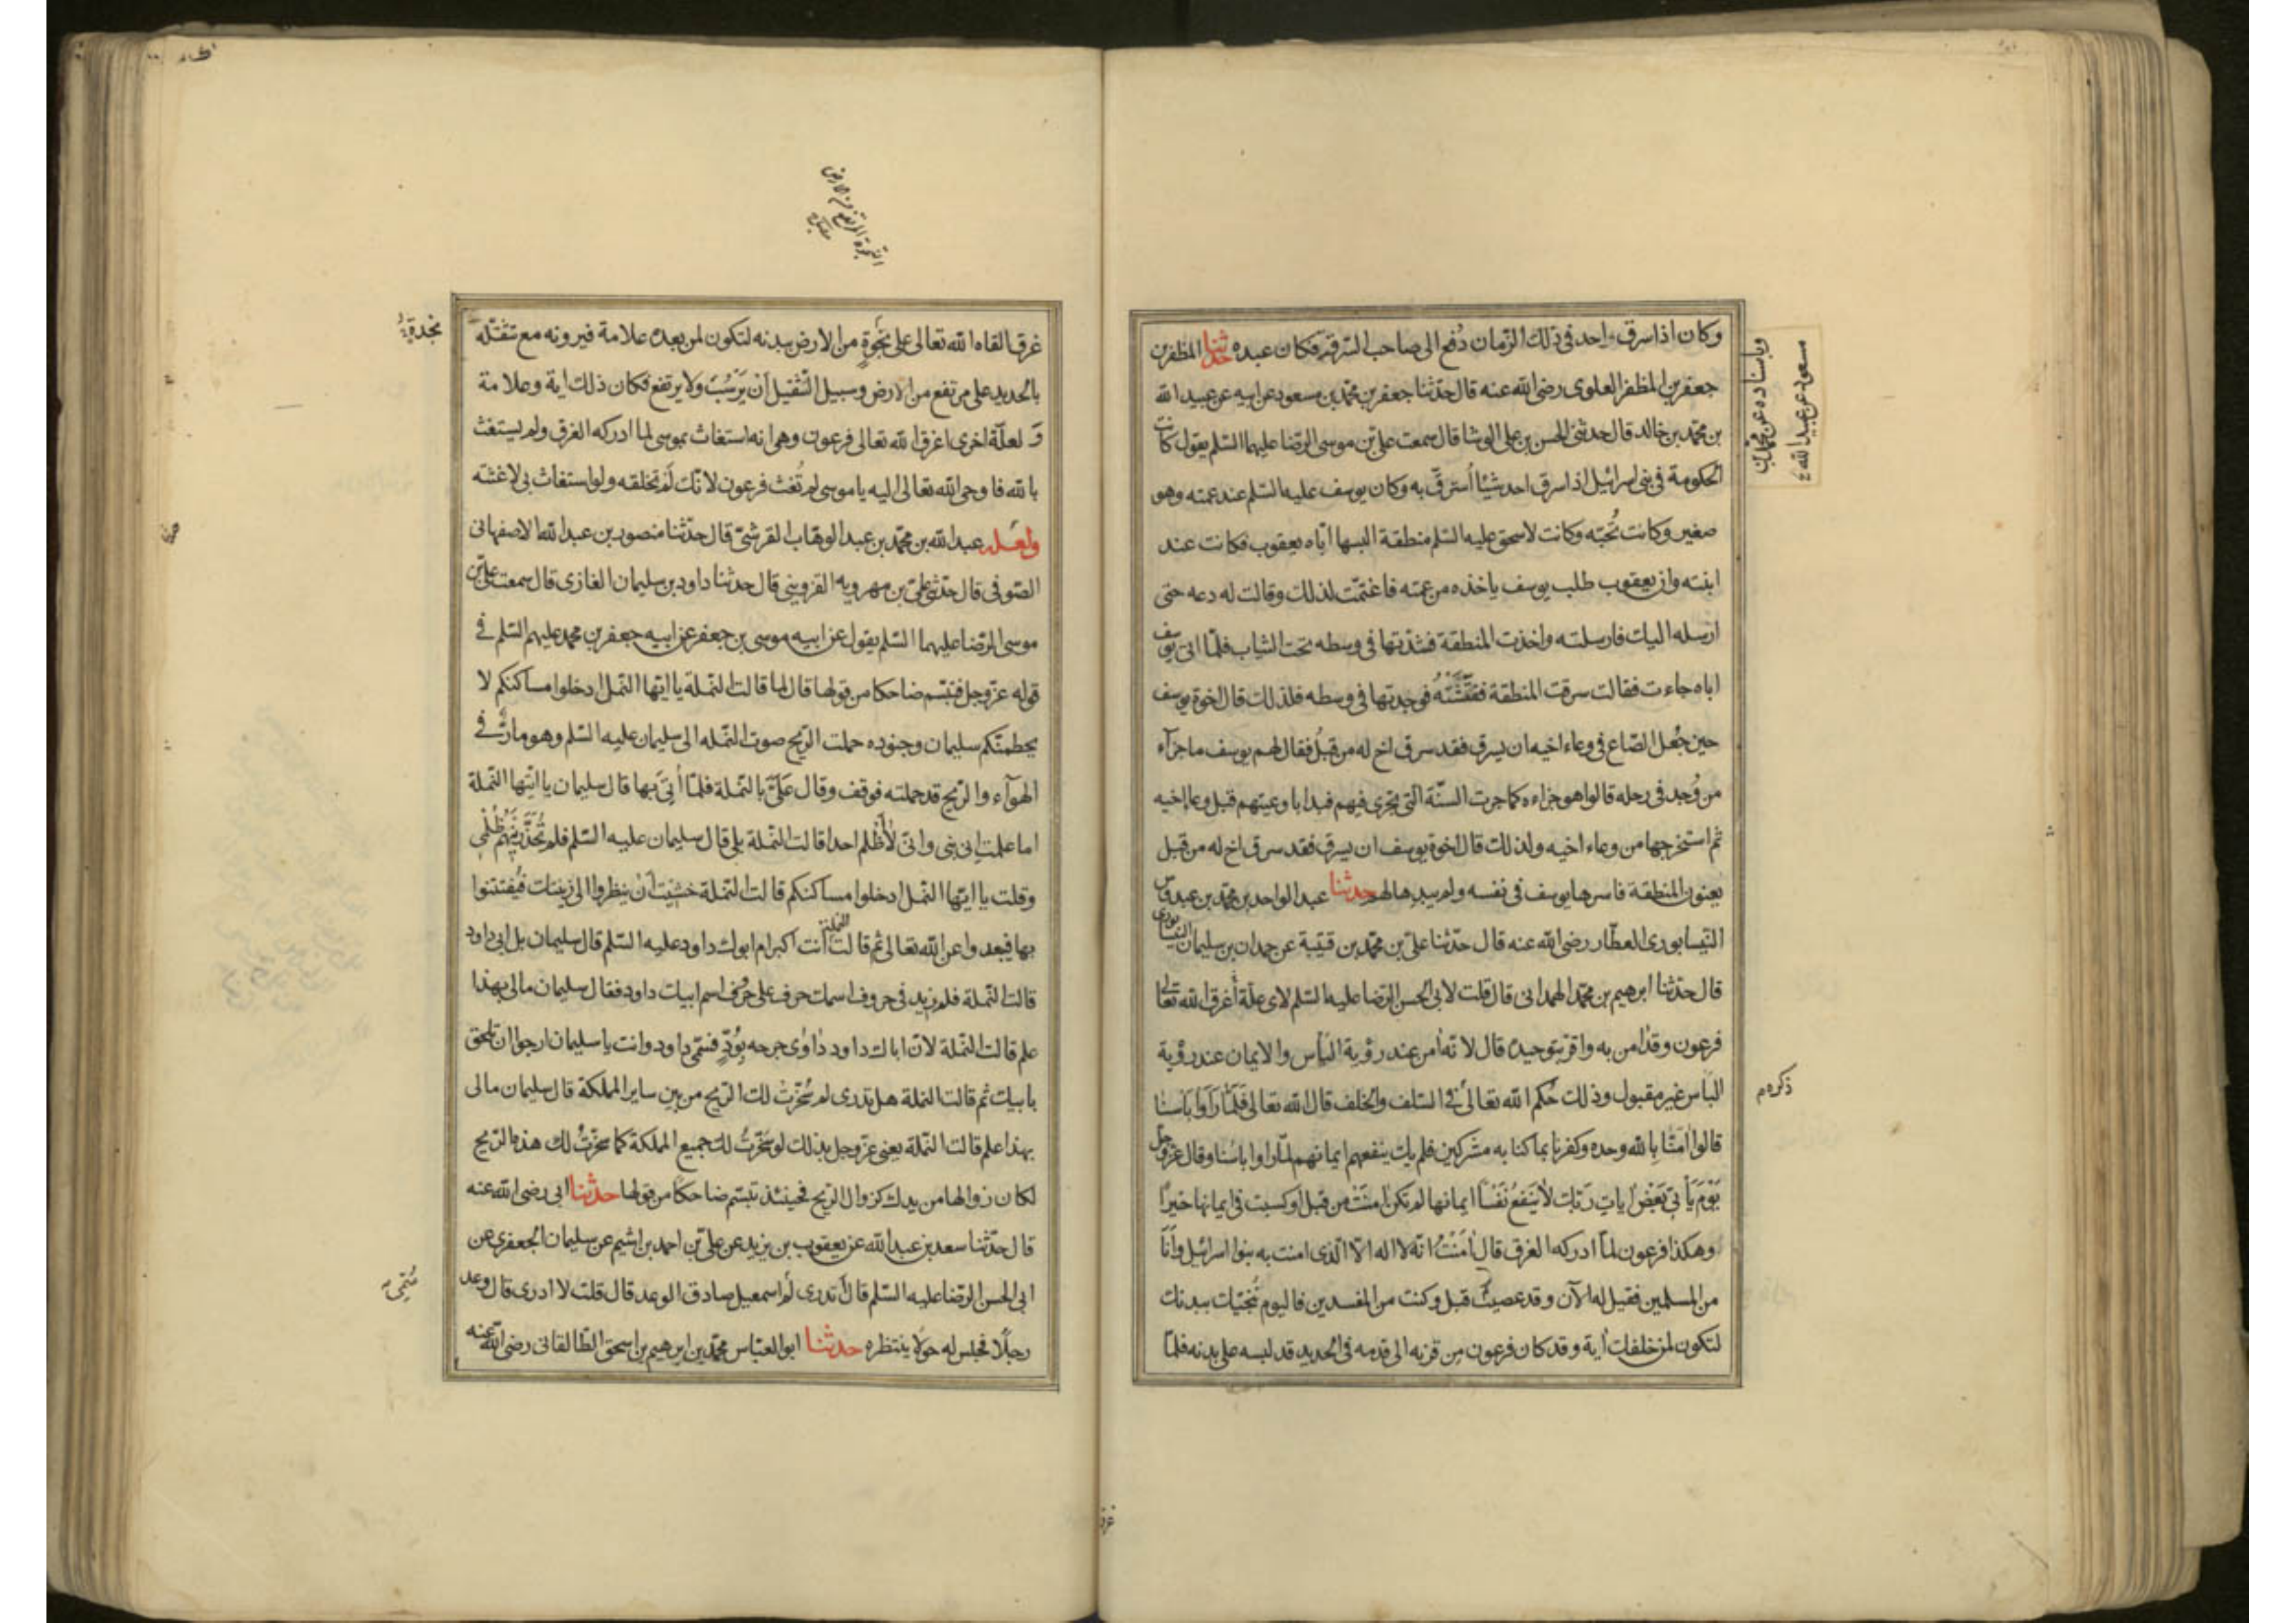 وكان اذا سرق واحد فى ذلك الزمان دُفع الى صاحب السرقة فكان عبده حدثنا المظفر بن
جعفر بن المظفر العلوى رضى الله عنه قال حدثنا جعفر بن محمّد بن مسعود عن ابيه عن عبيد الله
بن محمّد بن خالد قال حدثنى الحسن بن على الوشا قال سمعت علىّ بن موسى الرضا عليهما السّلم يقول كانت
الحكومة فى بنى اسرائيل اذا سرق احد شيئا اُسترقّ به وكان يوسف عليه السّلم عند عمته وهو
صغير وكانت تُحبّه وكانت لاسحق عليه السّلم منطقة البسها ايّاه يعقوب فكانت عند
ابنته وان يعقوب طلب يوسف ياخذه من عمته فاغتمّت لذلك وقالت له دعه حتى
ارسله اليك فارسلته واخذت المنطقة فشدّتها فى وسطه تحت الثياب فلمّا اتى يوسف
اباه جاءت فقالت سرقت المنطقة ففتّشته فوجدتها فى وسطه فلذلك قال اخوة يوسف
حين جُعل الصّاع فى وعاء اخيه ان يسرق فقد سرق اخ له من قبلُ فقال لهم يوسف ما جزآء
من وُجد فى رحله قالوا هو جزاءه كما جرت السنّة التى تجرى فيهم فبدا باوعيتهم قبل وعاء اخيه
ثم استخرجها من وعاء اخيه ولذلك قال اخوة يوسف ان يسرق فقد سرق اخ له من قبل
يعنون المنطقة فاسرها يوسف فى نفسه ولم يبدها لهم حدثنا عبد الواحد بن محمّد بن عبدوس
النيسابورى العطّار رضى الله عنه قال حدّثنا علىّ بن محمّد بن قتيبة عن حمدان بن سليمان النيسابورى
قال حدّثنا ابرهيم بن محمّد الهمدانى قال قلت لابى الحسن الرّضا عليه السّلم لاى علّة أغرق الله تعالى
فرعون وقد امن به واقرّ بتوحيده قال لانه اٰمن عند رؤية البأس والايمان عند رؤية
البأس غير مقبول وذلك حُكم الله تعالى فى السّلف والخلف قال الله تعالى فَلَمَّا رَاَوْا بَاْسَنَا
قالوا اٰمَنَّا بِالله وحده وكفرنا بما كنا به مشركين فلم يك ينفعهم ايمانهم لمّا راوا باسنا وقال عزّ وجلّ
يَوْمَ يَأْتِى بَعْضُ اٰيات رَبّك لاٰ يَنفَعُ نَفْسًا ايمانها لم تكن اٰمنَتْ من قبل او كسبت فى ايمانها خيرًا
وهكذا فرعون لمّا ادركه الغرق قال اٰمَنْتُ انّه لا اله الّا الّذى امنت به بنوا اسرائيل وأنَا
من المسلمين فقيل له الآن وقد عصيت قبل وكنت من المفسدين فاليوم نُنَجّيك ببدنك
لتكون لمن خلفك اٰية وقد كان فرعون من قرنه الى قدمه فى الحديد قد لبسه على بدنه فلمّا
وباسناده عن محمّد بن
مسعود عن عبيد الله
ذكره م
النجوة المرتفع من الارض
غرق القاه الله تعالى على نَجْوةٍ من الارض ببدنه لتكون لمن بعده علامة فيرونه مع تثقّله
بالحديد على مرتفع من الارض وسبيل الثّقيل اَنْ يَرْسُبَ ولا يرتفع فكان ذلك اية وعلامة
وَ لعلّة اخرى اغرق الله تعالى فرعون وهو انه استغاث بموسى لما ادركه الغرق ولم يستغث
بالله فاوحى الله تعالى اليه يا موسى لم تُغث فرعون لانّك لَم تخلقه ولو استغاث بى لاغثته
عبد الله بن محمّد بن عبد الوهّاب القرشىّ قال حدّثنا منصور بن عبد الله الاصفهانى
الصّوفى قال حدّثنى علىّ بن مهرويه القزوينى قال حدثنا داود بن سليمان الغازى قال سمعت علىّ بن
موسى الرّضا عليهما السّلم يقول عن ابيه موسى بن جعفر عن ابيه جعفر بن محمد عليهم السّلم فى
قوله عزّ وجل فتبسّم ضاحكا من قولها قال لما قالت النّملة يا ايّها النّمل ادخلوا مساكنكم لا
يحطمنّكم سليمان وجنوده حملت الرّيح صوت النّمله الى سليمان عليه السّلم وهو مارٌّ فى
الهوآء والرّيح قد حملته فوقف وقال عَلَىَّ بالنّملة فلمّا اُتِىَ بها قال سليمان يا ايّتها النّملة
اما علمت انى نبى وانّى لاٰ أَظْلم احدا قالت النّملة بلى قال سليمان عليه السّلم فلم تُحَذّرينَهُمْ ظُلْمى
وقلت يا ايّها النّمل ادخلوا مساكنكم قالت النّملة خشيت اَنْ ينظروا الى زينتك فيُفتتنوا
بها فيبعدوا عن الله تعالى ثم قالت النملة أنت اكبر ام ابوك داود عليه السّلم قال سليمان بل ابى داود
قالت النّملة فلم زيد فى حروف اسمك حرف على حروف اسم ابيك داود فقال سليمان مالى بهذا
علم قالت النّملة لانّ اباك داود دٰاوٰى جرحه بِوُدٍّ فسمّى داود وانت يا سليمان ارجوا ان تلحق
بابيك ثم قالت النملة هل تدرى لم سُخّرت لك الرّيح من بين ساير المملكة قال سليمان مالى
بهذا علم قالت النّملة يعنى عزّ وجل بذلك لو سَخّرتُ لك جميع المملكة كما سخّرتُ لك هذه الرّيح
لكان زوالها من يدك كزوال الرّيح فحينئذ تبسّم ضاحكًا من قولها حدّثنا ابى رضى الله عنه
قال حدّثنا سعد بن عبد الله عن يعقوب بن يزيد عن علىّ بن احمد بن اشيم عن سليمان الجعفرى عن
ابى الحسن الرّضا عليه السّلم قال أتدرى لم اسمعيل صادق الوعد قال قلت لا ادرى قال وعد
رجلًا فجلس له حولًا ينتظره حدثنا ابو العبّاس محمّد بن ابرهيم بن اسحق الطّالقانى رضى الله عنه
سُمّى
غرق